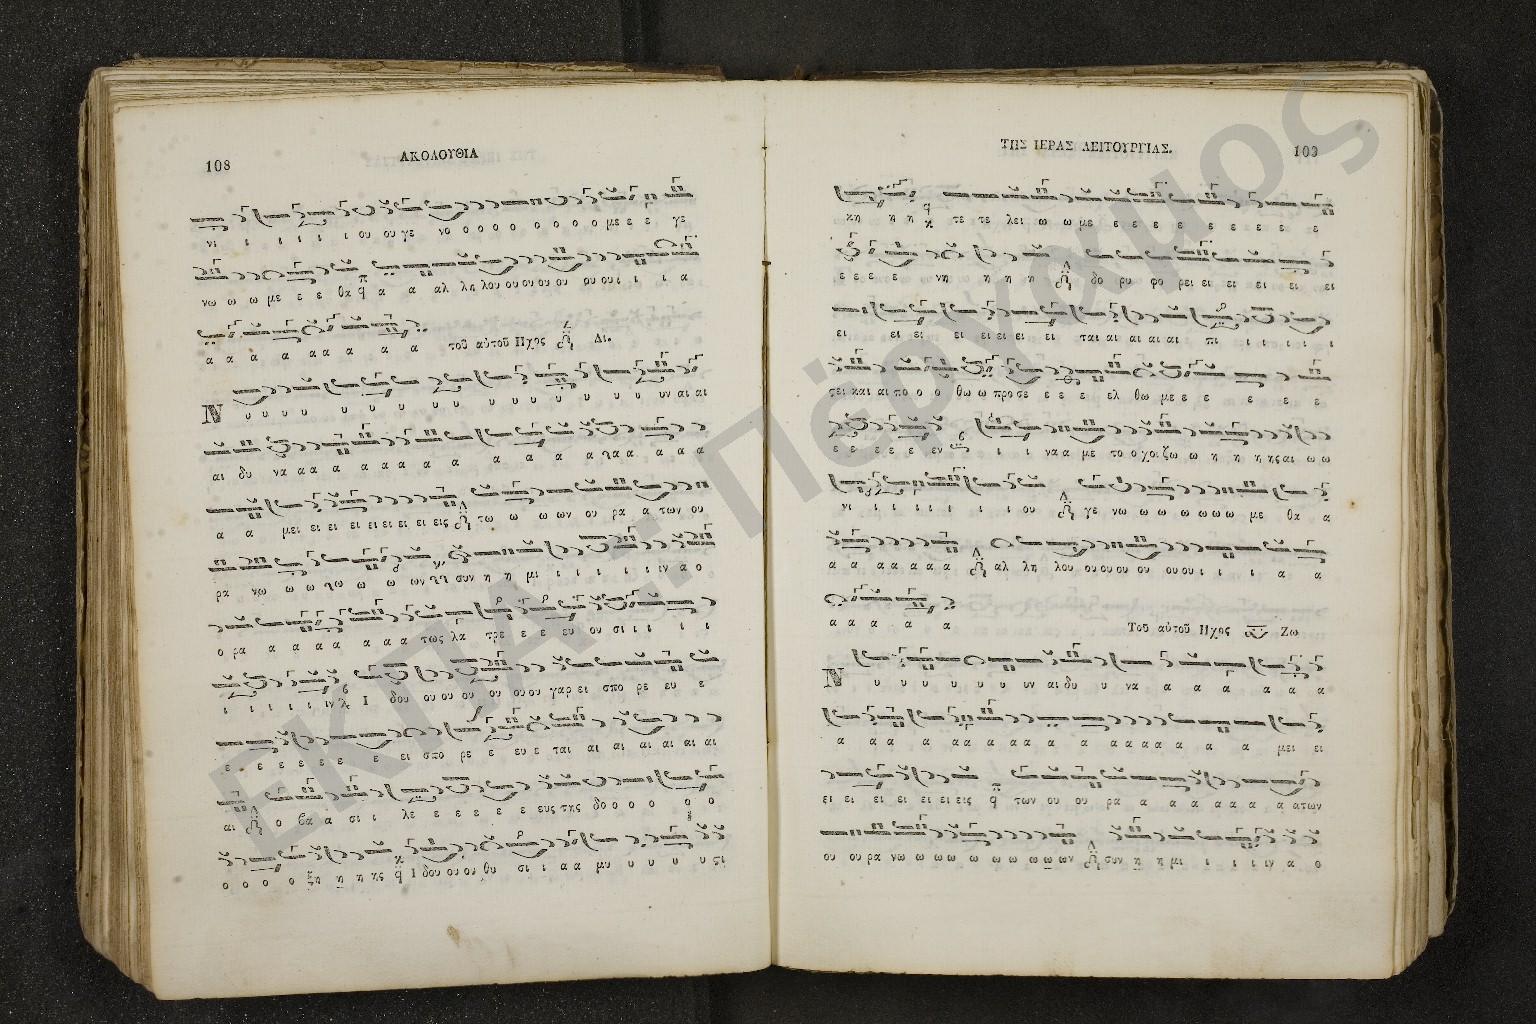 108
ΑΚΟΛΟΥΘΙΑ
νι ι ι ι ι ι ου ου γε νο ο ο ο ο ο ο ο ο με ε ε γε
νω ω ω με ε ε θα α α αλ λη λου ου ου ου ου ου ου ι ι ι α
α α α α α α α α α τοῦ αὐτοῦ Ηχος Δι.
Ν υ υ υ υ υ υ υ υ υ υ υ υ υ υ υ υν αι αι
αι δυ να α α α α α α α α α α α α α α α α
α α μει ει ει ει ει ει ει ει εις τω ω ω ων ου ρα α των ου
ρα νω ω ω ω ω ων συν η η μι ι ι ι ι ι ιν α ο
ο ρα α α α α α α α τως λα τρε ε ε ευ ου σι ι ι ι ι
ι ι ι ι ι ιν Ι δου ου ου ου ου ου ου γαρ ει σπο ρε ευ ε
ε ε ε ε ε ε ε ει σπο ρε ε ευ ε ται αι αι αι αι αι αι
αι ο βα α σι ι λε ε ε ε ε ε ευς της δο ο ο ο ο ο
ο ο ο ο ξη η η ης Ι δου ου ου θυ σι ι α α μυ υ υ υ υ υςι
ΤΗΣ ΙΕΡΑΣ ΛΕΙΤΟΥΡΓΙΑΣ.
109
κη η η τε τε λει ω ω με ε ε ε ε ε ε ε ε ε ε
ε ε ε ε νη η η η δο ρυ φο ρει ει ει ει ει ει ει
ει ει ει ει ει ει ει ει ται αι αι αι αι πι ι ι ι ι ι
ςει και αι πο ο ο θω ω προ σε ε ε ε ελ θω με ε ε ε ε ε
ε ε ε ε ε εν ι ι ι να α με το ο χοι ζω ω η η η ης αι ω ω
νι ι ι ι ι ι ι ου γε νω ω ω ω ω ω ω με θα α
α α α α α α αλ λη λου ου ου ου ου ου ου ι ι ι α α
α α α α α Τοῦ αὐτοῦ Ηχος Ζω
Ν υ υ υ υ υ υ υν αι δυ υ να α α α α α α
α α α α α α α α α α α α α α α α α μει ει
ει ει ει ει ει ει εις των ου ου ρα α α α α α α α των
ου ου ρα νω ω ω ω ω ω ω ω ων συν η η μι ι ι ι ιν α ο
ΕΚΠΑ: Πέργαμος